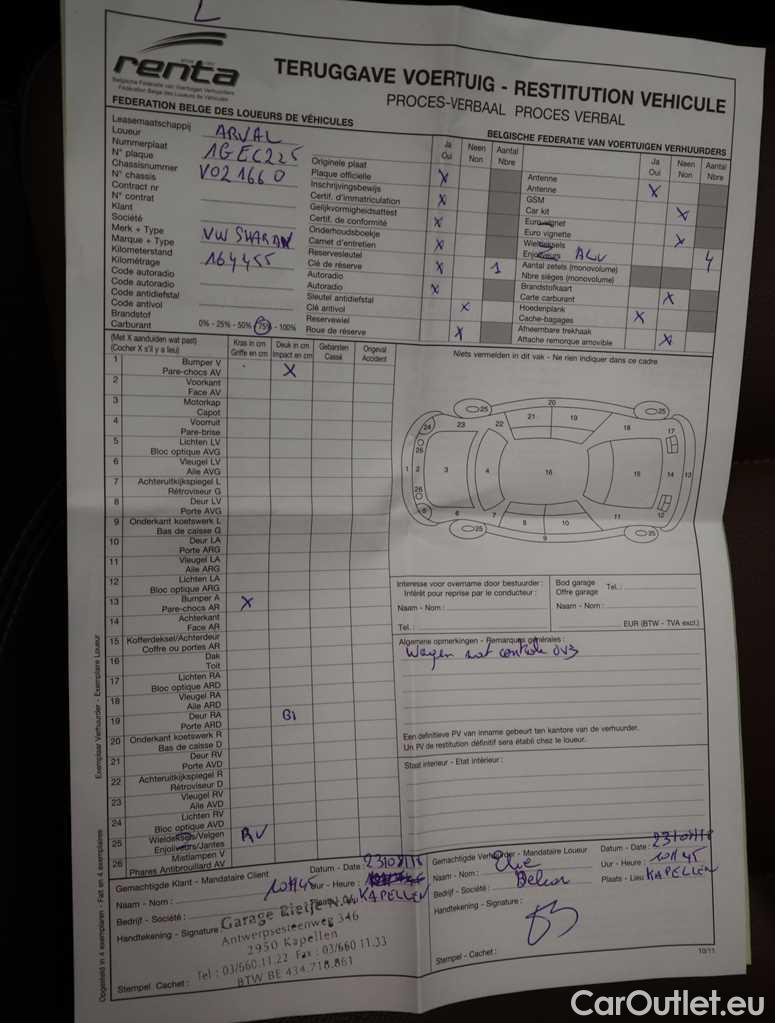 L
since 1981
renta
Belgische Federatie van Voertuigen Verhuurders
Fédération Belge des Loueurs de Véhicules
TERUGGAVE VOERTUIG - RESTITUTION VEHICULE
PROCES-VERBAAL PROCES VERBAL
FEDERATION BELGE DES LOUEURS DE VÉHICULES
BELGISCHE FEDERATIE VAN VOERTUIGEN VERHUURDERS
Leasemaatschappij
Loueur ARVAL
Nummerplaat
N° plaque 1GEC225
Chassisnummer
N° chassis V021660
Contract nr
N° contrat
Klant
Société
Merk + Type
Marque + Type VW SHARAN
Kilometerstand
Kilométrage 164455
Code autoradio
Code autoradio
Code antidiefstal
Code antivol
Brandstof
Carburant 0% - 25% - 50% - 75% - 100%
Ja Neen Aantal
Oui Non Nbre
Originele plaat
Plaque officielle X
Inschrijvingsbewijs
Certif. d'immatriculation X
Gelijkvormigheidsattest
Certif. de conformité X
Onderhoudsboekje
Carnet d'entretien X
Reservesleutel
Clé de réserve X 1
Autoradio
Autoradio X
Sleutel antidiefstal
Clé antivol X
Reservewiel
Roue de réserve X
Ja Neen Aantal
Oui Non Nbre
Antenne
Antenne X
GSM
Car kit X
Euro vignet
Euro vignette X
Wieldeksels
Enjoliveurs ALU 4
Aantal zetels (monovolume)
Nbre sièges (monovolume)
Brandstofkaart
Carte carburant X
Hoedenplank
Cache-bagages X
Afneembare trekhaak
Attache remorque amovible X
(Met X aanduiden wat past)
(Cocher X s'il y a lieu)
Kras in cm Deuk in cm Gebarsten Ongeval
Griffe en cm Impact en cm Cassé Accident
1 Bumper V
Pare-chocs AV X
2 Voorkant
Face AV
3 Motorkap
Capot
4 Voorruit
Pare-brise
5 Lichten LV
Bloc optique AVG
6 Vleugel LV
Aile AVG
7 Achteruitkijkspiegel L
Rétroviseur G
8 Deur LV
Porte AVG
9 Onderkant koetswerk L
Bas de caisse G
10 Deur LA
Porte ARG
11 Vleugel LA
Aile ARG
12 Lichten LA
Bloc optique ARG
13 Bumper A
Pare-chocs AR X
14 Achterkant
Face AR
15 Kofferdeksel/Achterdeur
Coffre ou portes AR
16 Dak
Toit
17 Lichten RA
Bloc optique ARD
18 Vleugel RA
Aile ARD
19 Deur RA
Porte ARD
20 Onderkant koetswerk R
Bas de caisse D
21 Deur RV
Porte AVD
22 Achteruitkijkspiegel R
Rétroviseur D
23 Vleugel RV
Aile AVD
24 Lichten RV
Bloc optique AVD
25 Wieldeksels/Velgen
Enjoliveurs/Jantes RV
26 Mistlampen V
Phares Antibrouillard AV
Niets vermelden in dit vak - Ne rien indiquer dans ce cadre
20
25 25
24 23 22 21 19 18 17
26
1 2 3 4 16 15 14 13
26
5 6 7 8 10 11 12
25 9 25
Interesse voor overname door bestuurder :
Intérêt pour reprise par le conducteur :
Naam - Nom :
Tel. :
Bod garage
Offre garage Tel. :
Naam - Nom :
EUR (BTW - TVA excl.)
Algemene opmerkingen - Remarques générales :
Een definitieve PV van inname gebeurt ten kantore van de verhuurder.
Un PV de restitution définitif sera établi chez le loueur.
Staat interieur - Etat intérieur :
Gemachtigde Klant - Mandataire Client
Datum - Date :
Naam - Nom : 10H45 Uur - Heure :
Bedrijf - Société : KAPELLEN
Handtekening - Signature
Garage Rietje N.V.
Antwerpsesteenweg 346
2950 Kapellen
Tel : 03/660.11.22 Fax : 03/660 11.33
BTW BE 434.718.861
Stempel Cachet :
Gemachtigde Verhuurder - Mandataire Loueur
Datum - Date :
Naam - Nom :
Uur - Heure : 10H45
Bedrijf - Société :
Plaats - Lieu KAPELLEN
Handtekening - Signature :
Stempel - Cachet :
10/11
Exemplaar Verhuurder - Exemplaire Loueur
Opgemaakt in 4 exemplaren - Fait en 4 exemplaires
CarOutlet.eu